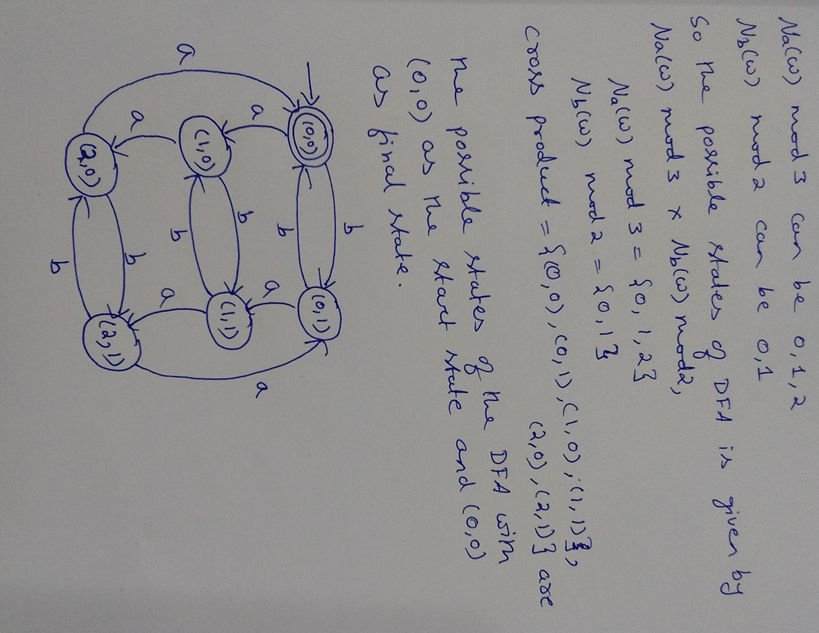 Na(w) mod 3 can be 0,1,2
Nb(w) mod 2 can be 0,1
So the possible states of DFA is given by
Na(w) mod 3 x Nb(w) mod 2,
Na(w) mod 3 = {0,1,2}
Nb(w) mod 2 = {0,1}
Cross product = {(0,0),(0,1),(1,0),(1,1)},
(2,0),(2,1)} are
the possible states of the DFA with
(0,0) as the start state and (0,0)
as final state.
(0,0) b (0,1)
b
a a
(1,0) b (1,1)
b
a a
(2,0) b (2,1)
b
a a